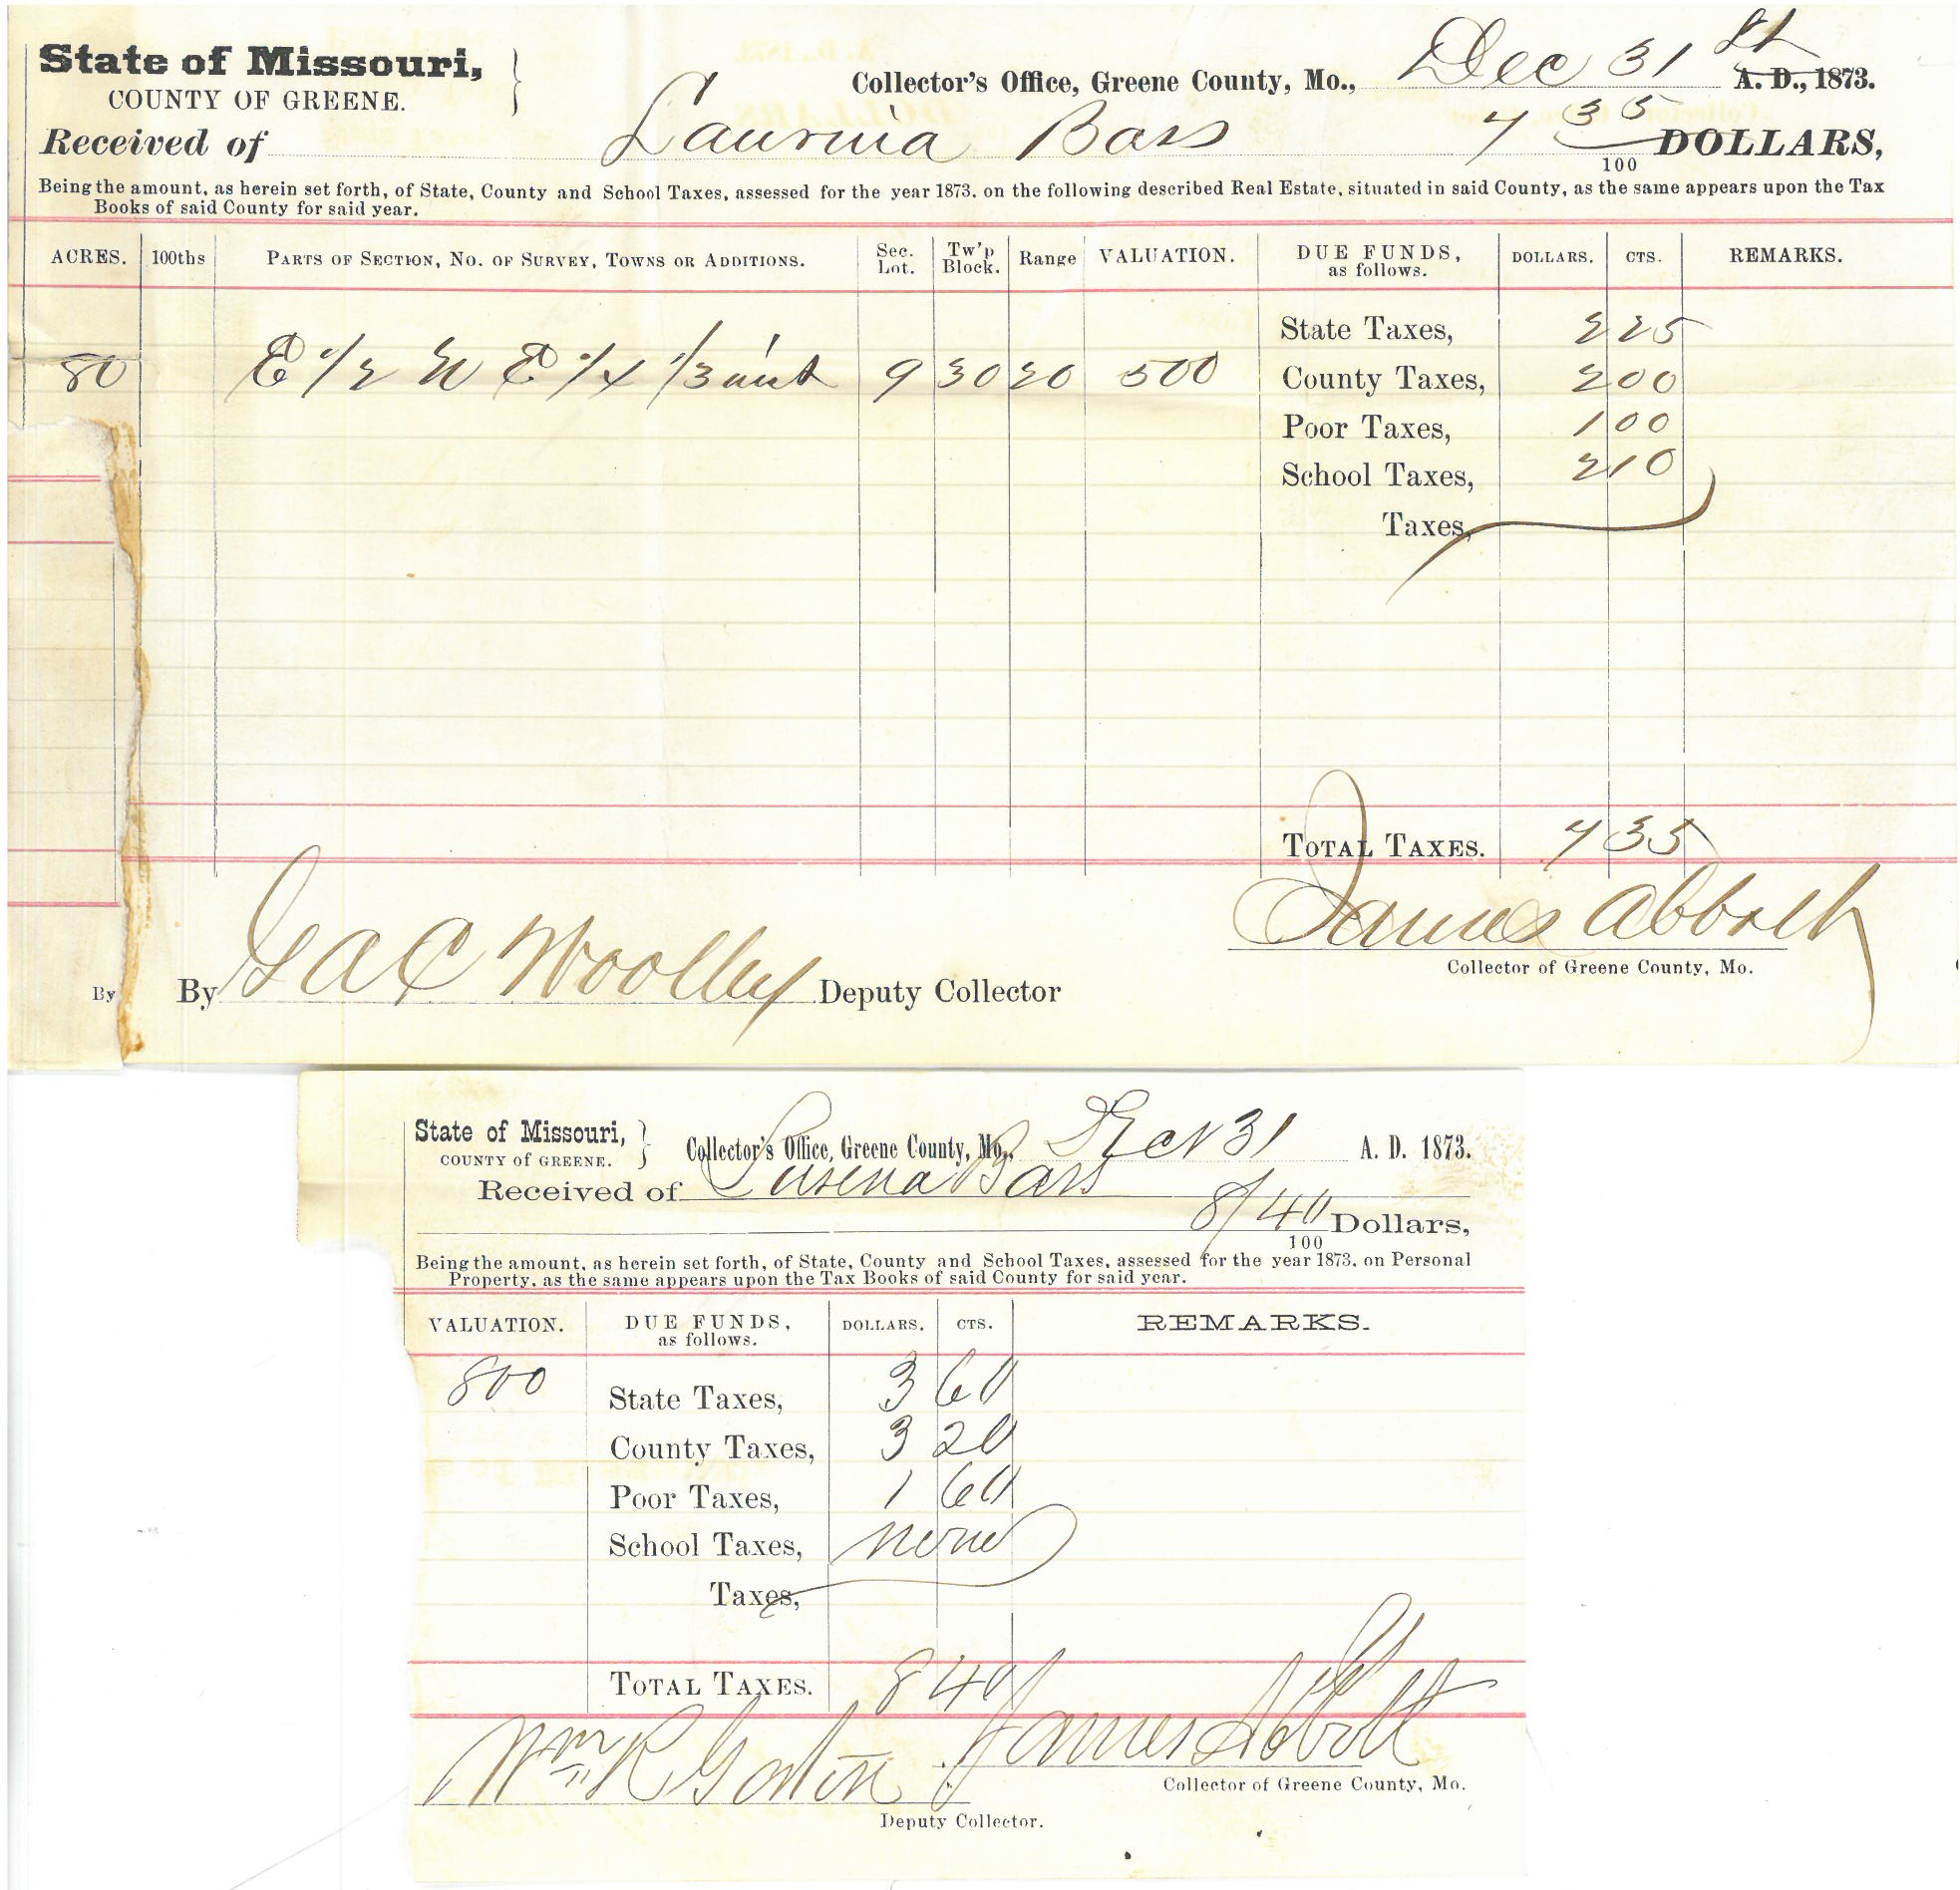 State of Missouri,
COUNTY OF GREENE.
Collector's Office, Greene County, Mo., Dec 31 st A. D., 1873.
Received of Laurnia Bass 7 35/100 DOLLARS,
Being the amount, as herein set forth, of State, County and School Taxes, assessed for the year 1873, on the following described Real Estate, situated in said County, as the same appears upon the Tax
Books of said County for said year.
ACRES. 100ths PARTS OF SECTION, NO. OF SURVEY, TOWNS OR ADDITIONS. Sec. Lot. Tw'p Block. Range VALUATION. DUE FUNDS, as follows. DOLLARS. CTS. REMARKS.
State Taxes, 2 25
80 E 1/2 N E 1/4 9 30 20 500 County Taxes, 2 00
Poor Taxes, 1 00
School Taxes, 2 10
Taxes,
TOTAL TAXES. 7 35
James Abbott
Collector of Greene County, Mo.
By
By G A C Woolley Deputy Collector
State of Missouri,
COUNTY of GREENE.
Collector's Office, Greene County, Mo., Dec 31 A. D. 1873.
Received of Lusena Bass
8/40/100 Dollars,
Being the amount, as herein set forth, of State, County and School Taxes, assessed for the year 1873, on Personal
Property, as the same appears upon the Tax Books of said County for said year.
VALUATION. DUE FUNDS, as follows. DOLLARS. CTS. REMARKS.
800 State Taxes, 3 60
County Taxes, 3 20
Poor Taxes, 1 60
School Taxes, none
Taxes,
TOTAL TAXES. 8 40
Wm R James Abbott
Collector of Greene County, Mo.
Deputy Collector.